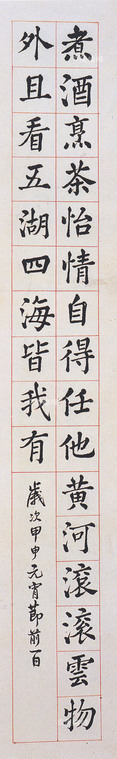 煮酒烹茶怡情自得任他黄河滚滚雲物
外且看五湖四海皆我有
歲次甲申元宵節前一日